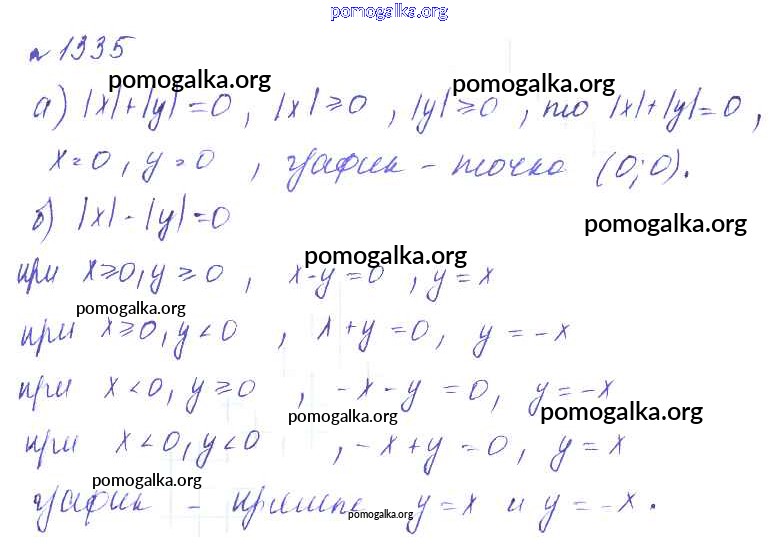 pomogalka.org
№ 1335
pomogalka.org pomogalka.org
а) |x|+|y|=0, |x|≥0, |y|≥0, то |x|+|y|=0,
x=0, y=0, график - точка (0;0).
б) |x|-|y|=0
pomogalka.org
pomogalka.org
при x≥0, y≥0, x-y=0, y=x
pomogalka.org
при x≥0, y<0, x+y=0, y=-x
при x<0, y≥0, -x-y=0, y=-x
pomogalka.org pomogalka.org
при x<0, y<0, -x+y=0, y=x
pomogalka.org
график - прямые y=x и y=-x.
pomogalka.org